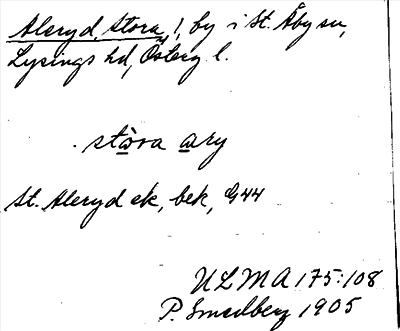 Aleryd, Stora, 1, by i St. Åby sn,
Lysings hd, Österg l.
stòra ary
St. Aleryd ek, bek, G44
ULMA 175:108
P. Smedberg 1905